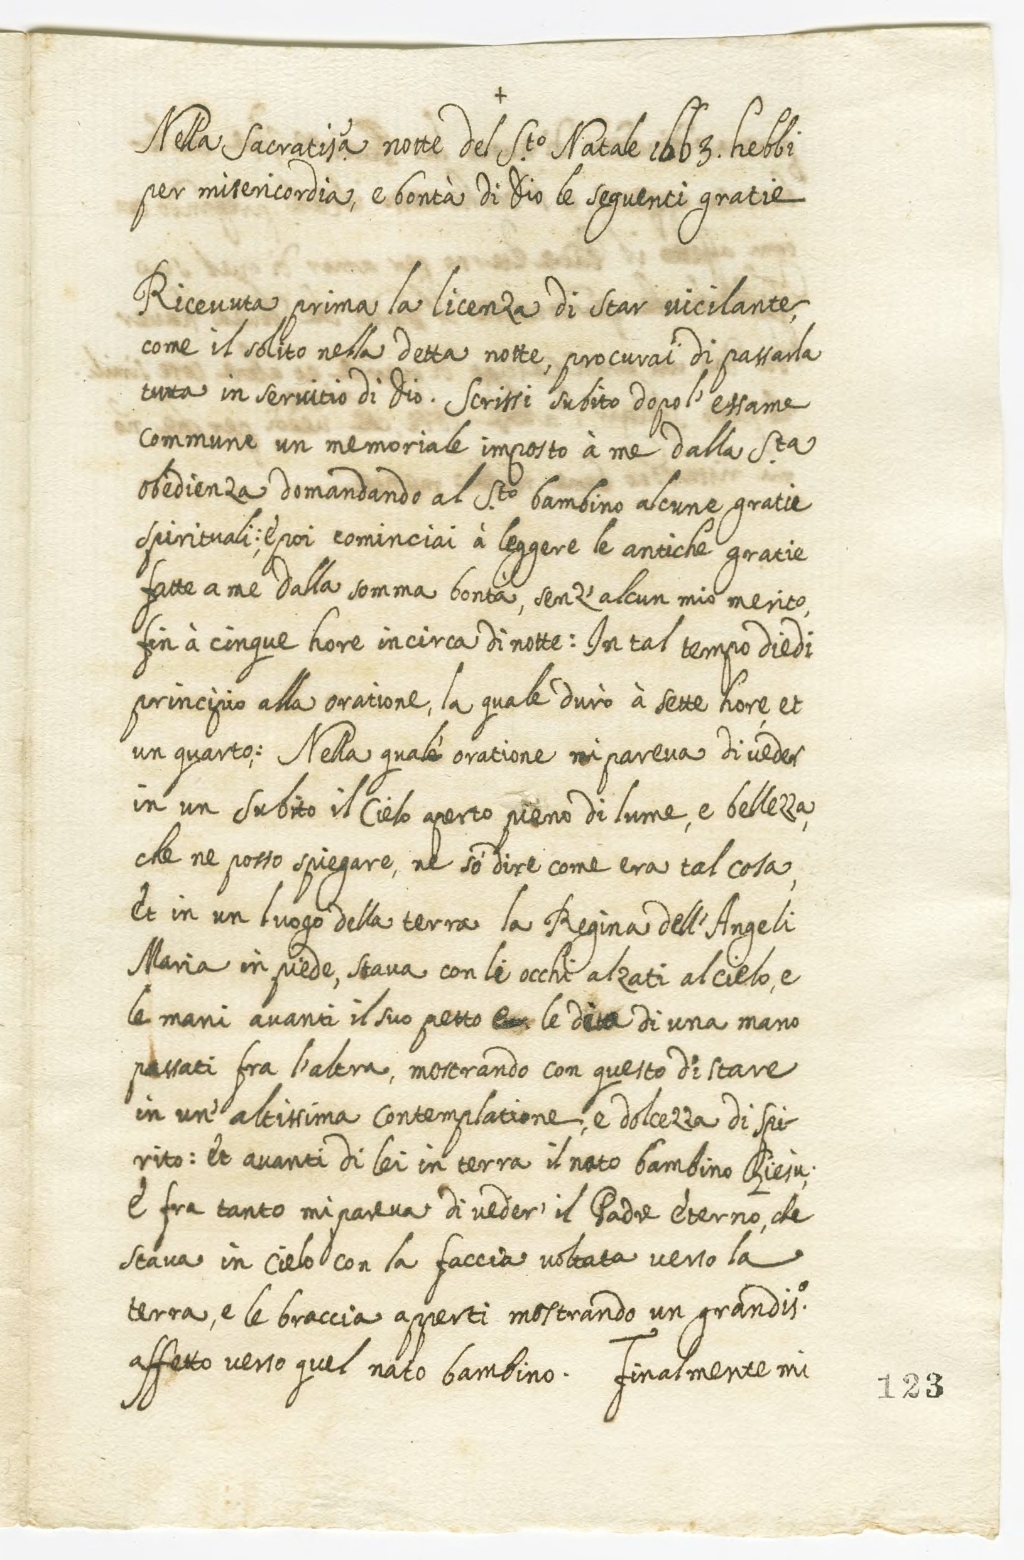 +
Nella Sacratis.ª notte del S.to Natale 1663. hebbi
per misericordia, e bontà di Dio le seguenti gratie
Riceuuta prima la licenza di star uicilante,
come il solito nella detta notte, procurai di passarla
tutta in seruitio di Dio. Scrissi subito dopo l'essame
commune un memoriale imposto à me dalla S.ta
obedienza domandando al S.to bambino alcune gratie
spirituali; è poi cominciai à leggere le antiche gratie
fatte a me dalla somma bontà, senz'alcun mio merito,
fin à cinque hore incirca di notte: In tal tempo diedi
principio alla oratione, la quale durò à sette hore, et
un quarto: Nella quale oratione mi pareua di ueder
in un subito il Cielo aperto pieno di lume, e bellezza,
che ne posso spiegare, ne sò dire come era tal cosa,
Et in un luogo della terra la Regina dell'Angeli
Maria in piede, staua con li occhi alzati al cielo, e
le mani auanti il suo petto le dita di una mano
passati fra l'altra, mostrando con questo di stare
in un'altissima contemplatione, e dolcezza di spi-
rito: Et auanti di lei in terra il nato bambino Giesù;
È fra tanto mi pareua di ueder' il Padre èterno, che
staua in cielo con la faccia uoltata uerso la
terra, e le braccia aperti mostrando un grandis.º
affetto uerso quel nato bambino. Finalmente mi
123